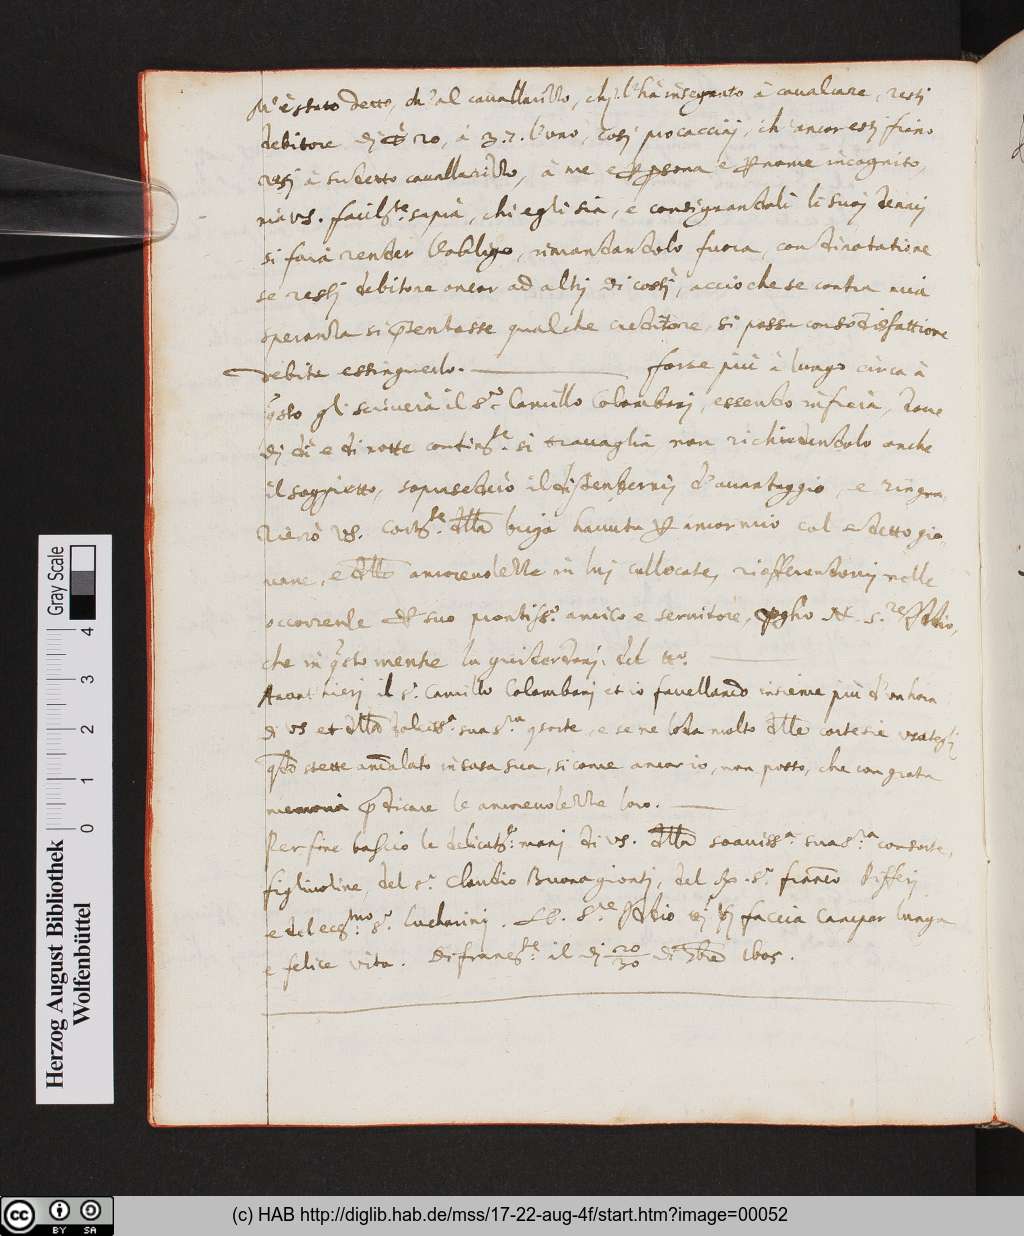 M'è stato detto, ch'al cavallarizzo, che l'hà insegnato à cavalcare, resti
debitore di 20, à 37. l'uno, così procaccij, ch'ancor esti siano
resi à sudetto cavallarizzo, à me e persona e nome incognito,
mà VS. facilm.te saprà, chi egli sia, e consignandoli li suoi denari
si farà render l'obligo, rimandandolo fuora, con dinotatione
se resti debitore ancor ad altri di costì, acciò che se contra mia
speranza si presentasse qualche creditore, si possa con sodisfattione
debita estinguerlo. forse più à lungo circa à
questo gli scriverà il S.r Camillo Colombani, essendo in fiera, dove
di dì e di notte si travaglia non richiedendolo anche
il soggietto, soprasederò il distendermi d'avantaggio, e ringra
tierò VS. della briga havuta amor mio col detto gio-
vane, e della amorevolezza in lui collocata, riofferendomi nelle
occorrenze suo prontiss.o amico e servitore, S.re Iddio,
che in questo mentre la guiderdoni del tto.
Avant'hieri il S.r Camillo Colombani et io favellando insieme più d'un hora
di VS et della dolciss.a sua S.ra consorte, e se ne loda molto della cortesia usategli
quando stette amalato in casa sua, si come ancor io, non posso, che con grata
memoria predicare le amorevolezze loro.
Per fine bascio le delicatiss. mani di VS. della soaviss.a sua S.ra consorte,
figlivoline, del S.r Claudio Buonagionti, del S.r Franco Pifferi
e del ecc.mo S.r Lucharini. S.re Iddio di faccia campar lunga
e felice vita. Di Francf.te il di 20/30 di 7bre 1605.
Gray Scale
0 1 2 3 4
Herzog August Bibliothek
Wolfenbüttel
cc BY SA
(c) HAB http://diglib.hab.de/mss/17-22-aug-4f/start.htm?image=00052